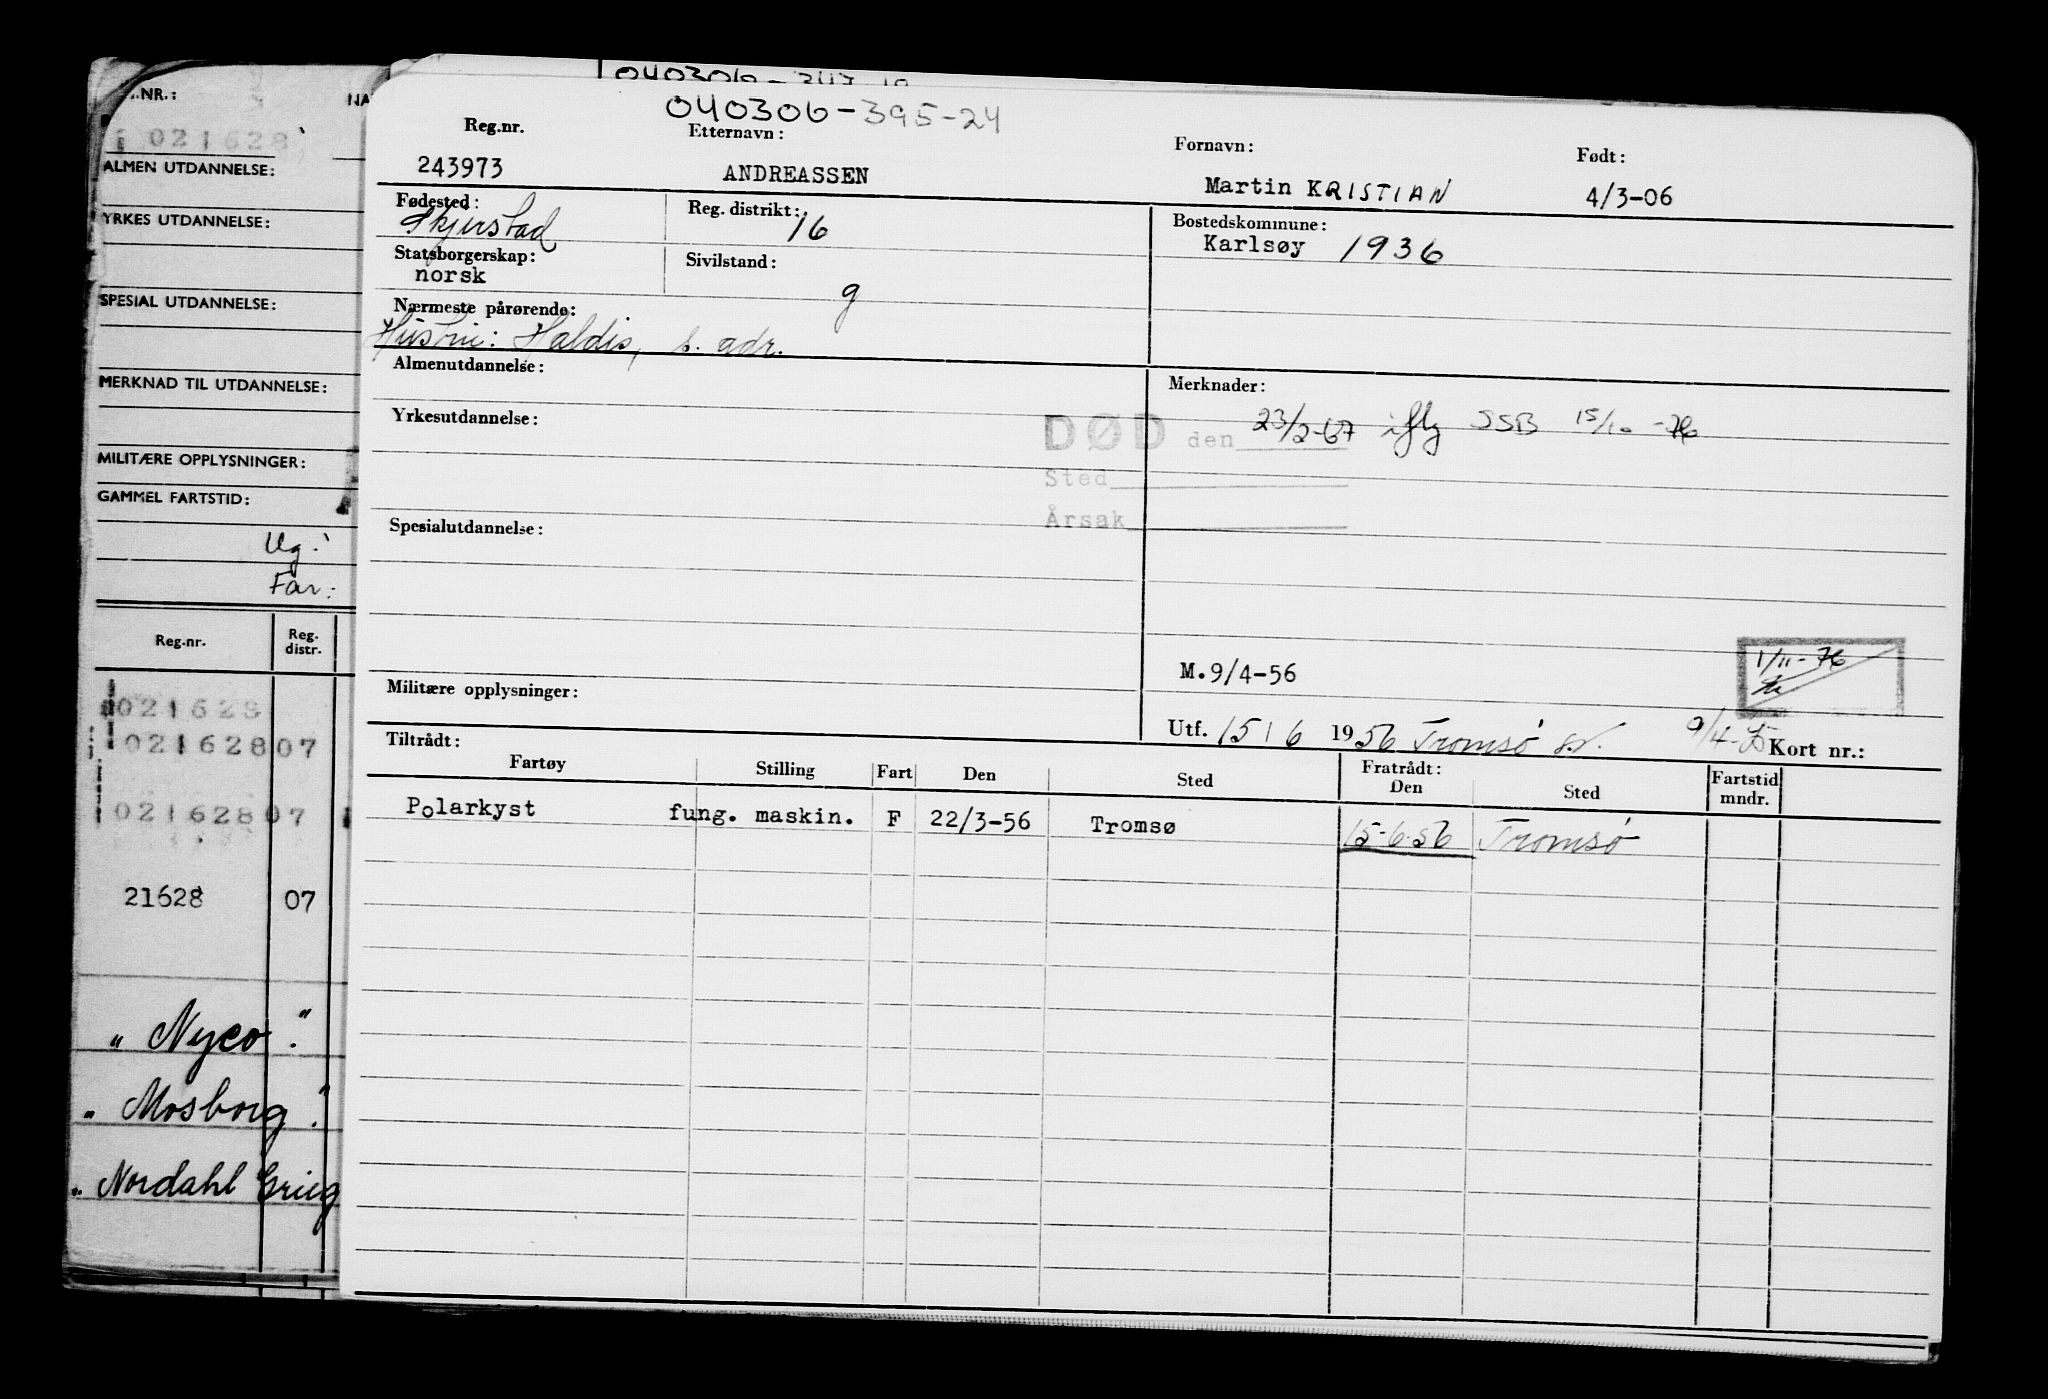 040306-395-24
Reg.nr. Etternavn: Fornavn: Født:
243973 ANDREASSEN Martin KRISTIAN 4/3-06
Fødested: Reg. distrikt: Bostedskommune:
Skjerstad 16 Karlsøy 1936
Statsborgerskap: Sivilstand:
norsk g
Nærmeste pårørende:
Hustru: Haldis, s. adr.
Almenutdannelse: Merknader:
Yrkesutdannelse: DØD den 23/2-67 iflg SSB 15/10-76
Sted
Årsak
Spesialutdannelse:
M.9/4-56 1/11-76
Militære opplysninger:
Utf. 15/6 1956 Tromsø Kort nr.:
Tiltrådt: Fratrådt:
Fartøy Stilling Fart Den Sted Den Sted Fartstid mndr.
Polarkyst fung. maskin. F 22/3-56 Tromsø 15-6-56 Tromsø
NR.: NA
021628
ALMEN UTDANNELSE:
YRKES UTDANNELSE:
SPESIAL UTDANNELSE:
MERKNAD TIL UTDANNELSE:
MILITÆRE OPPLYSNINGER:
GAMMEL FARTSTID:
Ug.
Far:
Reg.nr. Reg. distr.
021628
021628 07
021628 07
21628 07
" Nyco "
" Mosborg "
" Nordahl Grieg